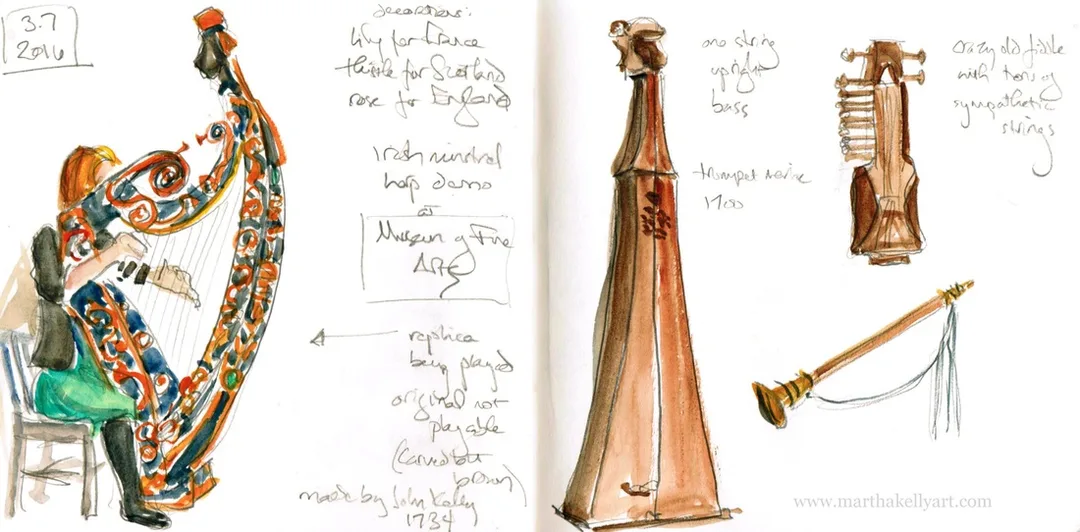 3.7
2016
decorations:
lily for France
thistle for Scotland
rose for England
Irish minstrel
harp demo
at
Museum of Fine
Arts
replica
being played
original not
playable
(carved
made by John Kelly
1734
one string
upright
bass
trumpet marine
1700
crazy old fiddle
with tons of
sympathetic
strings
www.marthakellyart.com